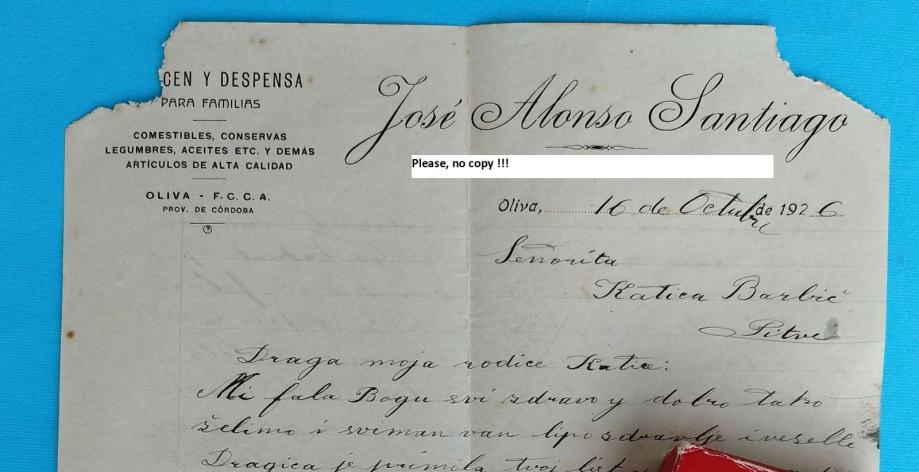 CEN Y DESPENSA
PARA FAMILIAS
COMESTIBLES, CONSERVAS
LEGUMBRES, ACEITES ETC. Y DEMÁS
ARTÍCULOS DE ALTA CALIDAD
OLIVA - F. C. C. A.
PROV. DE CÓRDOBA
José Alonso Santiago
Please, no copy !!!
Oliva, 16 de Octubre de 1926
Señorita
Katica Barbič
Pitve
Draga moja rodice Katice:
Mi fala Bogu svi zdravo y dobro tako
želimo i sviman van lipo zdravlje i veselle
Dragica je primila tvoj list